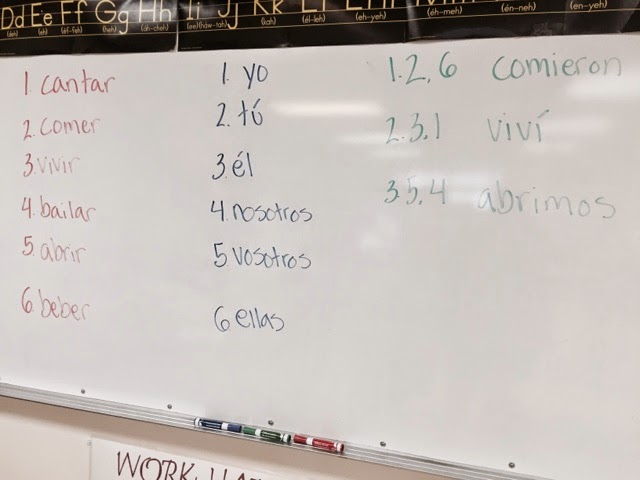 Dd Ee Ff Gg Hh Ii Jj Kk
(deh) (eh) (ef-feh) (heh) (ah-cheh) (ee) (haw-tah) (kah) (él-leh) (eh-yeh) (éh-meh) (én-neh) (en-yeh)
1. cantar
2. comer
3. vivir
4. bailar
5. abrir
6. beber
1. yo
2. tú
3. él
4. nosotros
5 vosotros
6. ellas
1. 2, 6 comieron
2. 3, 1 viví
3. 5, 4 abrimos